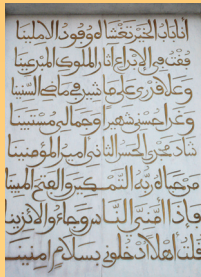 أنا باب الخير تغشاه وفود الآملينا
فقت في الإبداع آثار الملوك المترعينا
وعلا قدري على ما شيد في ماضي السنينا
وغدا حسني شهيرا وجمالي مستبينا
شاد مجدي الحسن الثاني أمير المؤمنينا
من حباه ربه التمكين والفتح المبينا
فإذا الناس وجاءوا
قلت أهلا ادخلوني بسلام آمنينا